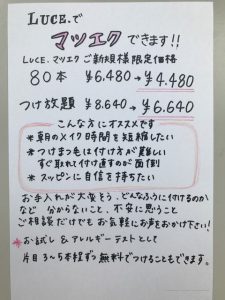 LUCE.で
マツエクできます!!
LUCE.マツエクご新規様限定価格
80本 ¥6.480→¥4.480
つけ放題 ¥8.640→¥6.640
こんな方にオススメです
*毎日のメイク時間を短縮したい
*つけまつ毛は付け方が難しい
すぐ取れて付け直すのが面倒
*スッピンに自信を持ちたい
お手入れが大変そう、どんなふうに付けるのか
など 分からないこと、不安に思うこと
ご相談だけでもお気軽にお声をおかけ下さい!
*お試し&アレルギーテストとして
片目3~5本程ずつ無料でつけることもできます。